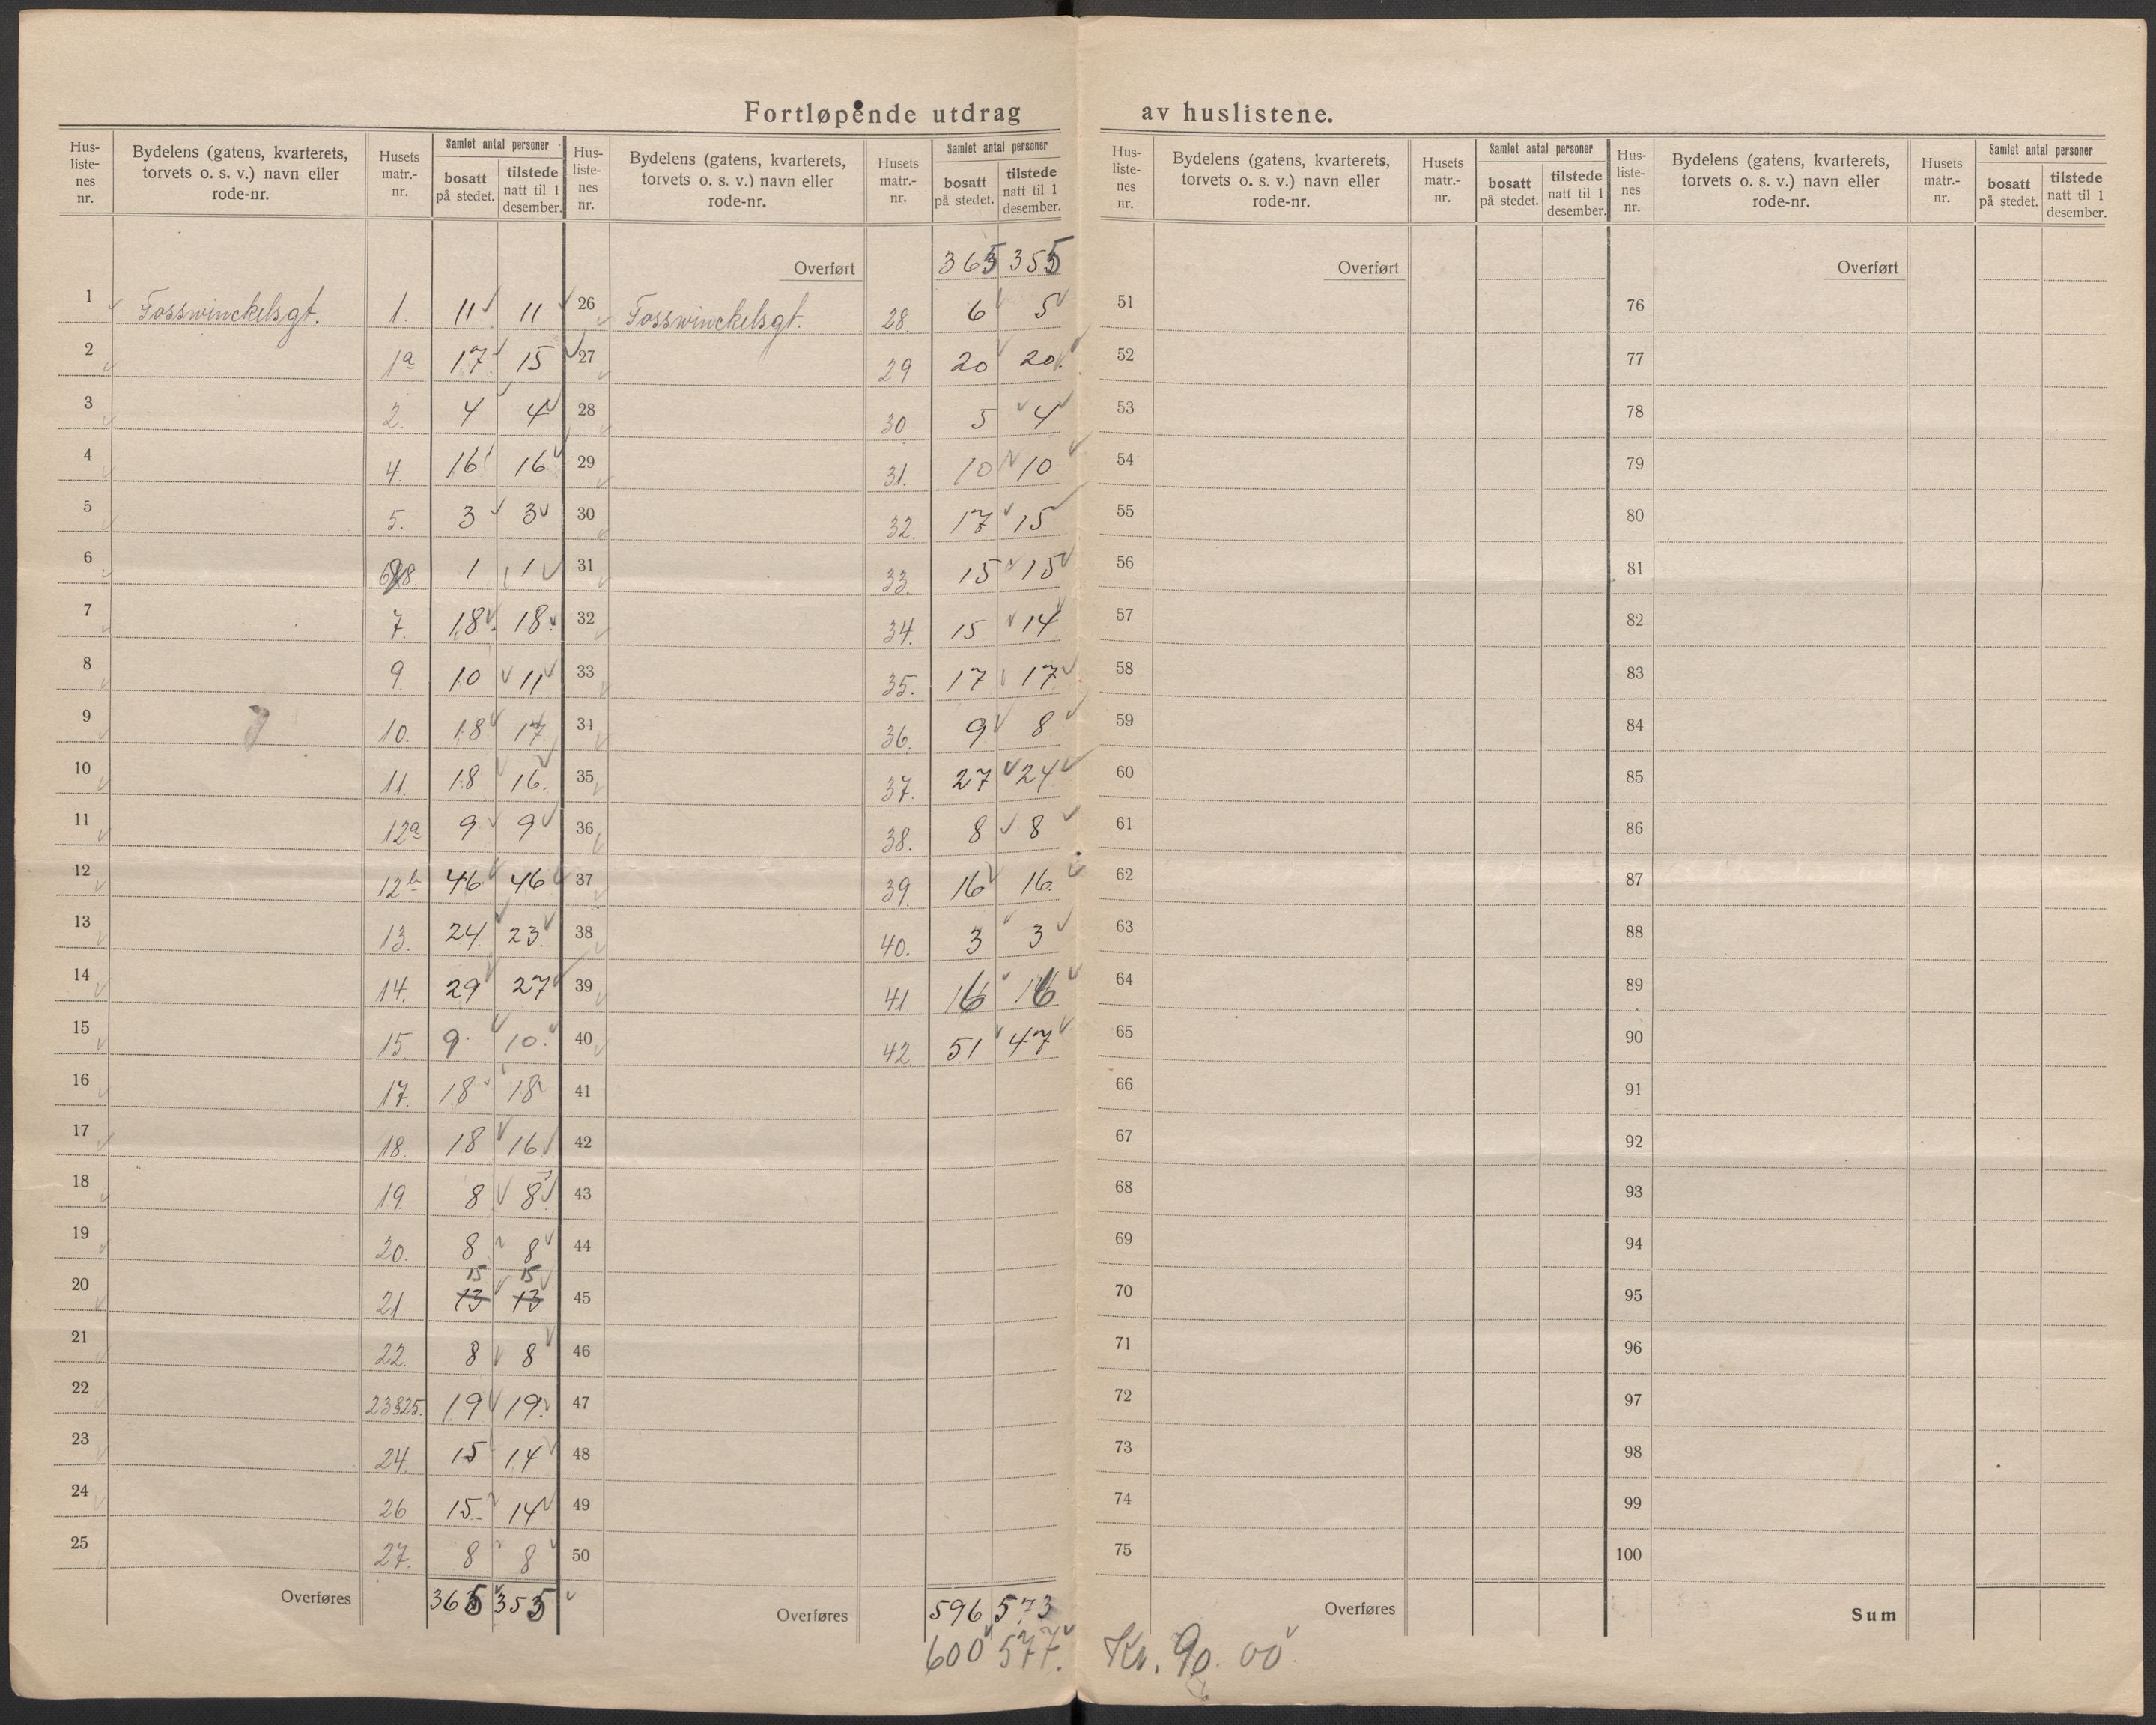 Fortløpende utdrag av huslistene.
Hus-listenes nr. | Bydelens (gatens, kvarterets, torvets o. s. v.) navn eller rode-nr. | Husets matr.-nr. | Samlet antal personer | bosatt på stedet. | tilstede natt til 1 desember.
1 Fosswinckelsgt. 1. 11 11
2 1a 17 15
3 2. 4 4
4 4. 16 16
5 5. 3 3
6 1 1
7 7. 18 18
8 9. 10 11
9 10. 18 17
10 11. 18 16
11 12a 9 9
12 12b 46 46
13 13. 24 23
14 14. 29 27
15 15. 9 10
16 17. 18 18
17 18. 18 16
18 19. 8 8
19 20. 8 8
20 21. 13 15 13 15
21 22. 8 8
22 23&25. 19 19
23 24. 15 14
24 26 15 14
25 27. 8 8
Overføres 365 355
Hus-listenes nr. | Bydelens (gatens, kvarterets, torvets o. s. v.) navn eller rode-nr. | Husets matr.-nr. | Samlet antal personer | bosatt på stedet. | tilstede natt til 1 desember.
Overført 365 355
26 Fosswinckelsgt. 28. 6 5
27 29 20 20
28 30 5 4
29 31. 10 10
30 32. 17 15
31 33. 15 15
32 34. 15 14
33 35. 17 17
34 36. 9 8
35 37. 27 24
36 38. 8 8
37 39. 16 16
38 40. 3 3
39 41. 16 16
40 42. 51 47
41
42
43
44
45
46
47
48
49
50
Overføres 596 573
600 577.
Hus-listenes nr. | Bydelens (gatens, kvarterets, torvets o. s. v.) navn eller rode-nr. | Husets matr.-nr. | Samlet antal personer | bosatt på stedet. | tilstede natt til 1 desember.
Overført
51
52
53
54
55
56
57
58
59
60
61
62
63
64
65
66
67
68
69
70
71
72
73
74
75
Overføres
Kr. 90.00
Hus-listenes nr. | Bydelens (gatens, kvarterets, torvets o. s. v.) navn eller rode-nr. | Husets matr.-nr. | Samlet antal personer | bosatt på stedet. | tilstede natt til 1 desember.
Overført
76
77
78
79
80
81
82
83
84
85
86
87
88
89
90
91
92
93
94
95
96
97
98
99
100
Sum